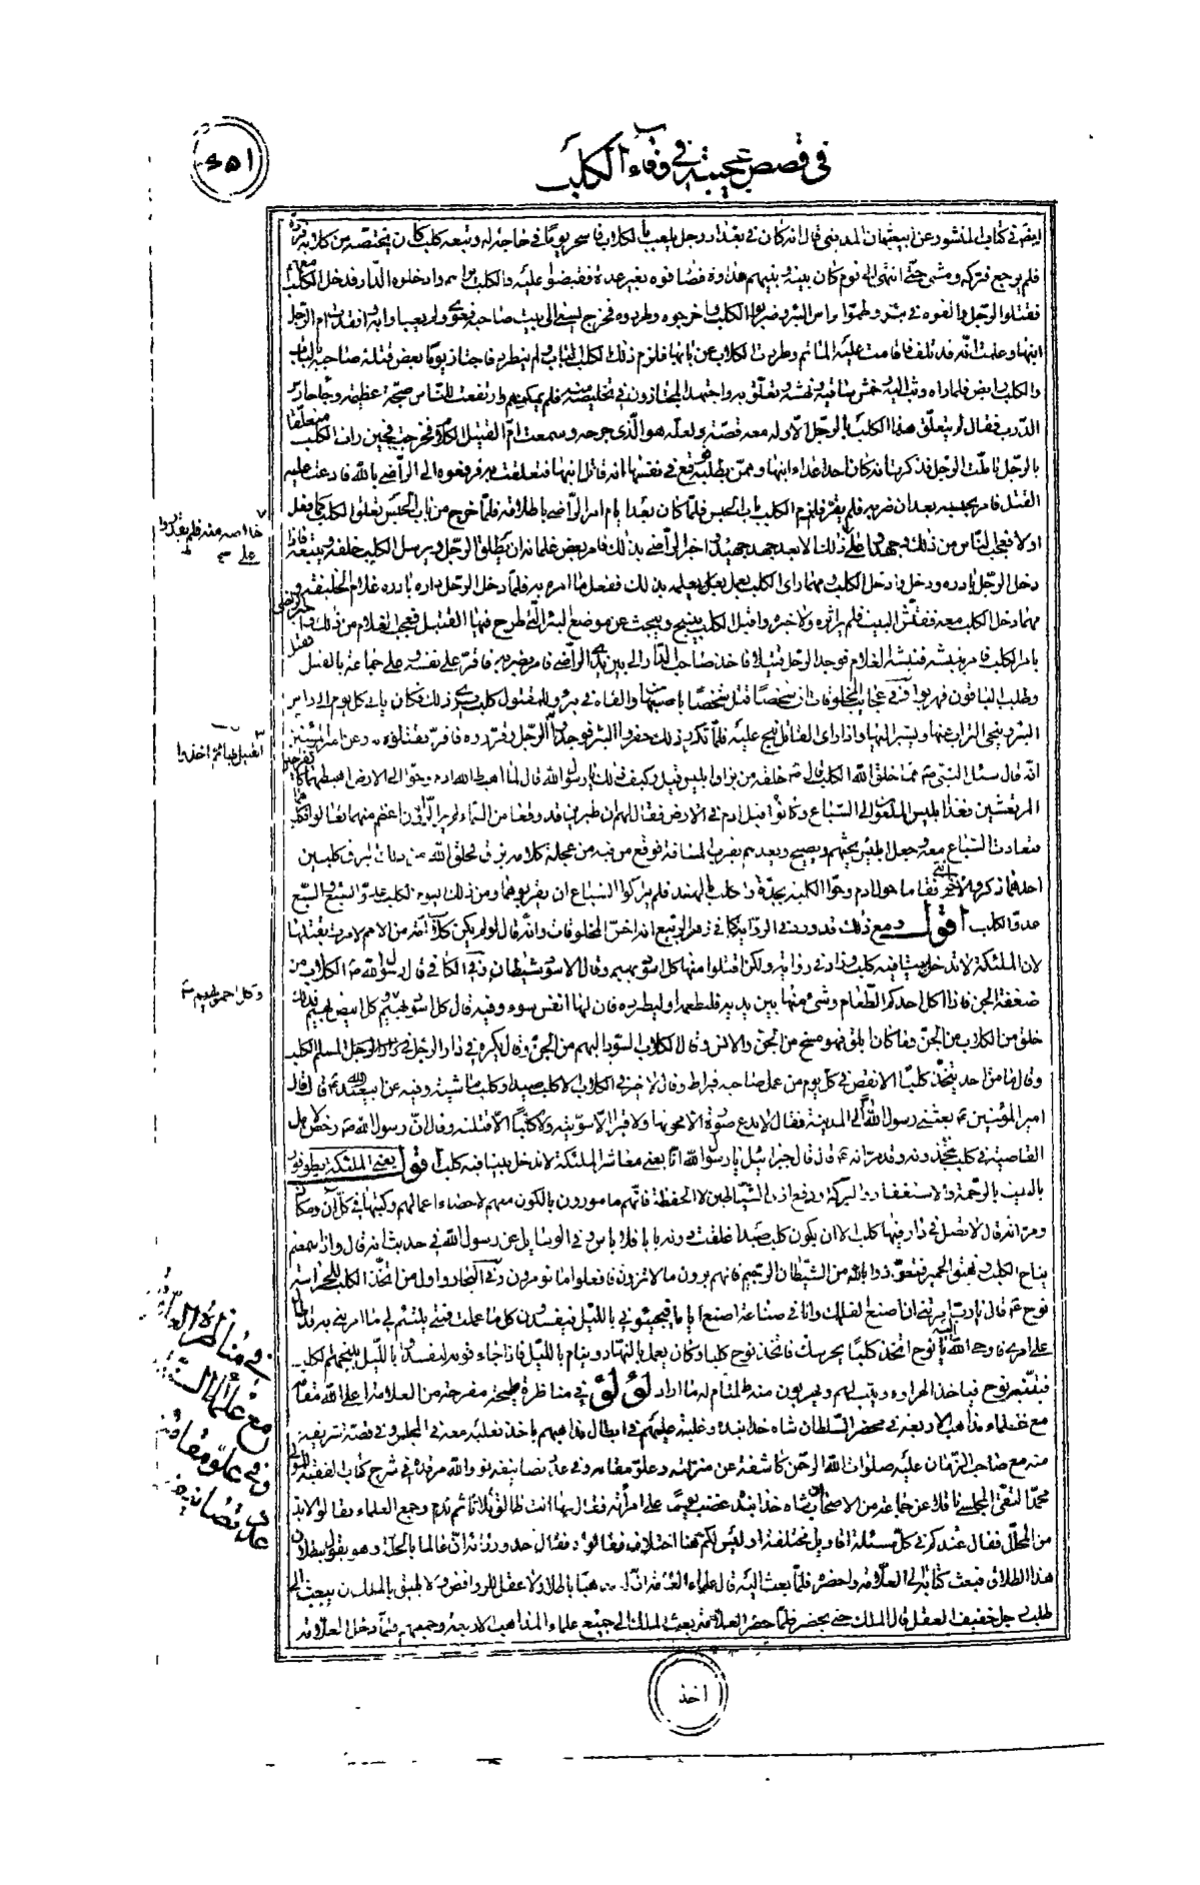 في قصص عجيبة في وفاء الكلب
ايضا في كتاب المنشور عن ابي عثمان المديني قال انه كان في بغداد رجل يلعب بالكلاب فاسحر يوما في حاجة له وتبعه كلب كان يختصه من كلابه فرده
فلم يرجع فتركه ومشى حتى انتهى الى قوم كان بينه وبينهم عداوة فصادفوه بغير عدة فقبضوا عليه والكلب يراهم وادخلوه الدار فدخل الكلب معهم
فقتلوا الرجل والقوه في بئر وطموا راس البئر وضربوا الكلب واخرجوه وطردوه فخرج يسعى الى بيت صاحبه فعوى ولم يعبأوا به وافتقدت ام الرجل
ابنها وعلمت انه قد تلف فاقامت عليه الماتم وطردت الكلاب عن بابها فلزم ذلك الكلب الباب ولم ينطرد فاجتاز يوما بعض قتلة صاحبه بالباب
والكلب رابض فلما راه وثب اليه وخمش ساقيه ونهشه وتعلق به واجتهد المجتازون في تخليصه منه فلم يمكنهم وارتفعت للناس ضجة عظيمة وجاء حارس
الدرب فقال لم يتعلق هذا الكلب بالرجل الا وله معه قصة ولعله هو الذي جرحه وسمعت ام القتيل الكلام فخرجت فحين رات الكلب متعلقا
بالرجل تاملت الرجل فذكرت انه كان احد اعداء ابنها وممن يطلبه فوقع في نفسها انه قاتل ابنها فتعلقت به فرفعوه الى الراضي بالله فادعت عليه
القتل فامر بحبسه بعد ان ضربه فلم يقر فلزم الكلب باب الحبس فلما كان بعد ايام امر الراضي باطلاقه فلما خرج من باب الحبس تعلق الكلب كما فعل
اولا فعجب الناس من ذلك وجهدوا على ذلك الا بعد جهد جهيد واخبر الراضي بذلك فامر بعض غلمانه ان يطلق الرجل ويرسل الكلب خلفه ويتبعه فاذا
دخل الرجل بادره ودخل وادخل الكلب ومهما راى الكلب يعمل يعلمه بذلك ففعل ما امره به فلما دخل الرجل داره بادره غلام الخليفة و
دخل الكلب معه ففتش البيت فلم ير اثره ولا خبره واقبل الكلب ينبح ويبحث عن موضع البئر التي طرح فيها القتيل فعجب الغلام من ذلك واخبر الراضي
بامر الكلب فامر بنبشه فنبشه الغلام فوجد الرجل قتيلا فاخذ صاحب الدار الى بين يدي الراضي فامر بضربه فاقر على نفسه وعلى جماعة بالقتل فقتل
وطلب الباقون فهربوا وفي عجائب المخلوقات ان شخصا قتل شخصا باصبهان والقاه في بئر وللمقتول كلب يرى ذلك فكان ياتي كل يوم الى راس
البئر وينحي التراب عنها ويشير اليها واذا راى القاتل نبح عليه فلما تكرر ذلك حفروا البئر فوجدوا الرجل فقرروه فاقر فقتلوه وعن امير المؤمنين
انه قال سئل النبي ص مما خلق الله الكلب قال ص خلقه من بزاق ابليس قيل وكيف ذلك يا رسول الله قال لما اهبط الله ادم وحوا الى الارض اهبطهما كالفرخين
المرتعشين فغدا ابليس الملعون الى السباع وكانوا قبل ادم في الارض فقال لهم ان طيرين قد وقعا من السماء لم ير الراؤن اعظم منهما تعالوا فكلوهما
فتعادت السباع معه وجعل ابليس يحثهم ويصيح ويعدهم بقرب المسافة فوقع من فيه من عجلة كلامه بزاق فخلق الله من ذلك البزاق كلبين
احدهما ذكر والاخر انثى فقاما حول ادم وحوا الكلبة بجدة والكلب بالهند فلم يتركوا السباع ان يقربوهما ومن ذلك اليوم الكلب عدو السبع والسبع
عدو الكلب اقول ومع ذلك قد ورد في الرواية كما في زهر الربيع انه اخس المخلوقات وانه قال لو لم يكن كلاب امة من الامم لامرت بقتلها
لان الملئكة لا تدخل بيتا فيه كلب وزاد في رواية ولكن اقتلوا منها كل اسود بهيم وقال الاسود شيطان وفي الكافي قال رسول الله ص الكلاب من
ضعفة الجن فاذا اكل احدكم الطعام وشيء منها بين يديه فليطعمه او ليطرده فان لها انفس سوء وفيه قال كل اسود بهيم وكل ابيض بهيم فذلك
خلق من الكلاب من الجن وما كان ابلق فهو مسخ من الجن والانس وقال الكلاب السود البهيم من الجن وقال يكره في دار الرجل المسلم الكلب
وقال ما من احد يتخذ كلبا الا نقص في كل يوم من عمل صاحبه قيراط وقال لا خير في الكلاب الا كلب صيد او كلب ماشية وفيه عن ابي عبد الله ع قال قال
امير المؤمنين ع بعثني رسول الله الى المدينة فقال لا تدع صورة الا محوتها ولا قبرا الا سويته ولا كلبا الا قتلته وقال ان رسول الله ص رخص لاهل
القاصية في كلب يتخذونه وقد مر انه ع قال قال جبرائيل يا رسول الله انا يعني معاشر الملئكة لا ندخل بيتا فيه كلب اقول يعني الملئكة يطوفون
بالبيت بالرحمة والاستغفار والبركة ودفع اذى الشياطين لا الحفظة فانهم مامورون بالكون معهم لاحصاء اعمالهم وكتبها في كل آن ومكان
ومر انه قال لا تصل في دار فيها كلب الا ان يكون كلب صيد اغلقت دونه بابا فلا باس وفي الوسايل عن رسول الله في حديث انه قال واذا سمعتم
نباح الكلب ونهيق الحمير فتعوذوا بالله من الشيطان الرجيم فانهم يرون ما لا ترون فافعلوا ما تؤمرون وفي البحار واول من اتخذ الكلب للحراسة
نوح ع قال يا رب امرتني ان اصنع الفلك وانا في صناعة اصنع اياما فيجيئوني بالليل فيفسدون كل ما عملت فمتى يلتئم لي ما امرتني به قد طال
علي امري فاوحى الله اليه يا نوح اتخذ كلبا يحرسك فاتخذ نوح كلبا وكان يعمل بالنهار وينام بالليل فاذا جاء قومه ليفسدوا بالليل ينبحهم الكلب
فينتبه نوح فياخذ الهراوة ويثب لهم ويهربون منه فالتئم له ما اراد لؤلؤ في مناظرة مليحة مفرحة من العلامة اعلى الله مقامه
مع علماء مذاهب الاربعة في محضر السلطان شاه خدابنده وغلبته عليهم في ابطال مذاهبهم باخذ نعليه معه في المجلس وفي قصة شريفة
منه مع صاحب الزمان عليه صلوات الله الرحمن كاشفة عن منزلته وعلو مقامه وفي عدد تصانيفه نور الله مرقده في شرح كتاب الفقيه للمولى
محمد التقي المجلسي ناقلا عن جماعة من الاصحاب ان شاه خدابنده غضب يوما على امراته فقال لها انت طالق ثلاثا ثم ندم وجمع العلماء فقالوا لا بد
من المحلل فقال عندكم في كل مسئلة اقاويل مختلفة او ليس لكم هنا اختلاف فقالوا لا فقال احد وزرائه ان عالما بالحلة وهو يقول ببطلان
هذا الطلاق فبعث كتابه الى العلامة واحضره فلما بعث اليه قال علماء العامة ان له مذهبا باطلا ولا عقل للروافض ولا يليق بالملك ان يبعث الى
طلب رجل خفيف العقل قال الملك حتى يحضر فلما حضر العلامة بعث الملك الى جميع علماء المذاهب الاربعة وجمعهم فلما دخل العلامة
اخذ
في مناظرة العلامة
مع علماء السنة
وفي علو مقامه
وعدد تصانيفه